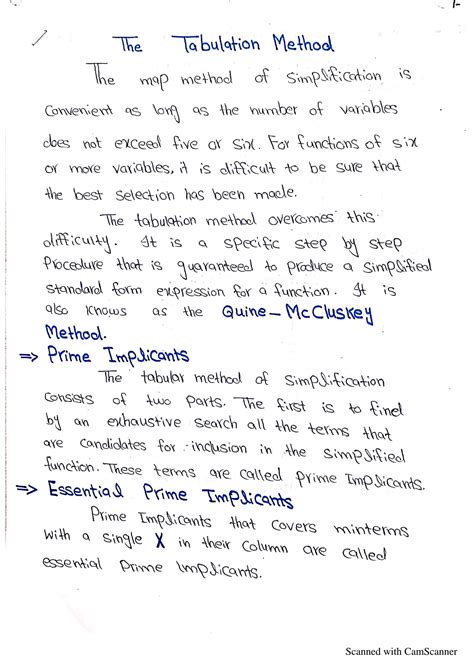 1-
The Tabulation Method
The map method of simplification is
convenient as long as the number of variables
does not exceed five or six. For functions of six
or more variables, it is difficult to be sure that
the best selection has been made.
The tabulation method overcomes this
difficulty. It is a specific step by step
Procedure that is guaranteed to produce a simplified
standard form expression for a function. It is
also knows as the Quine-McCluskey
Method.
⇒ Prime Implicants
The tabular method of simplification
consists of two parts. The first is to find
by an exhaustive search all the terms that
are candidates for inclusion in the simplified
function. These terms are called prime Implicants.
⇒ Essential Prime Implicants
Prime Implicants that covers minterms
with a single X in their column are called
essential Prime Implicants.
Scanned with CamScanner